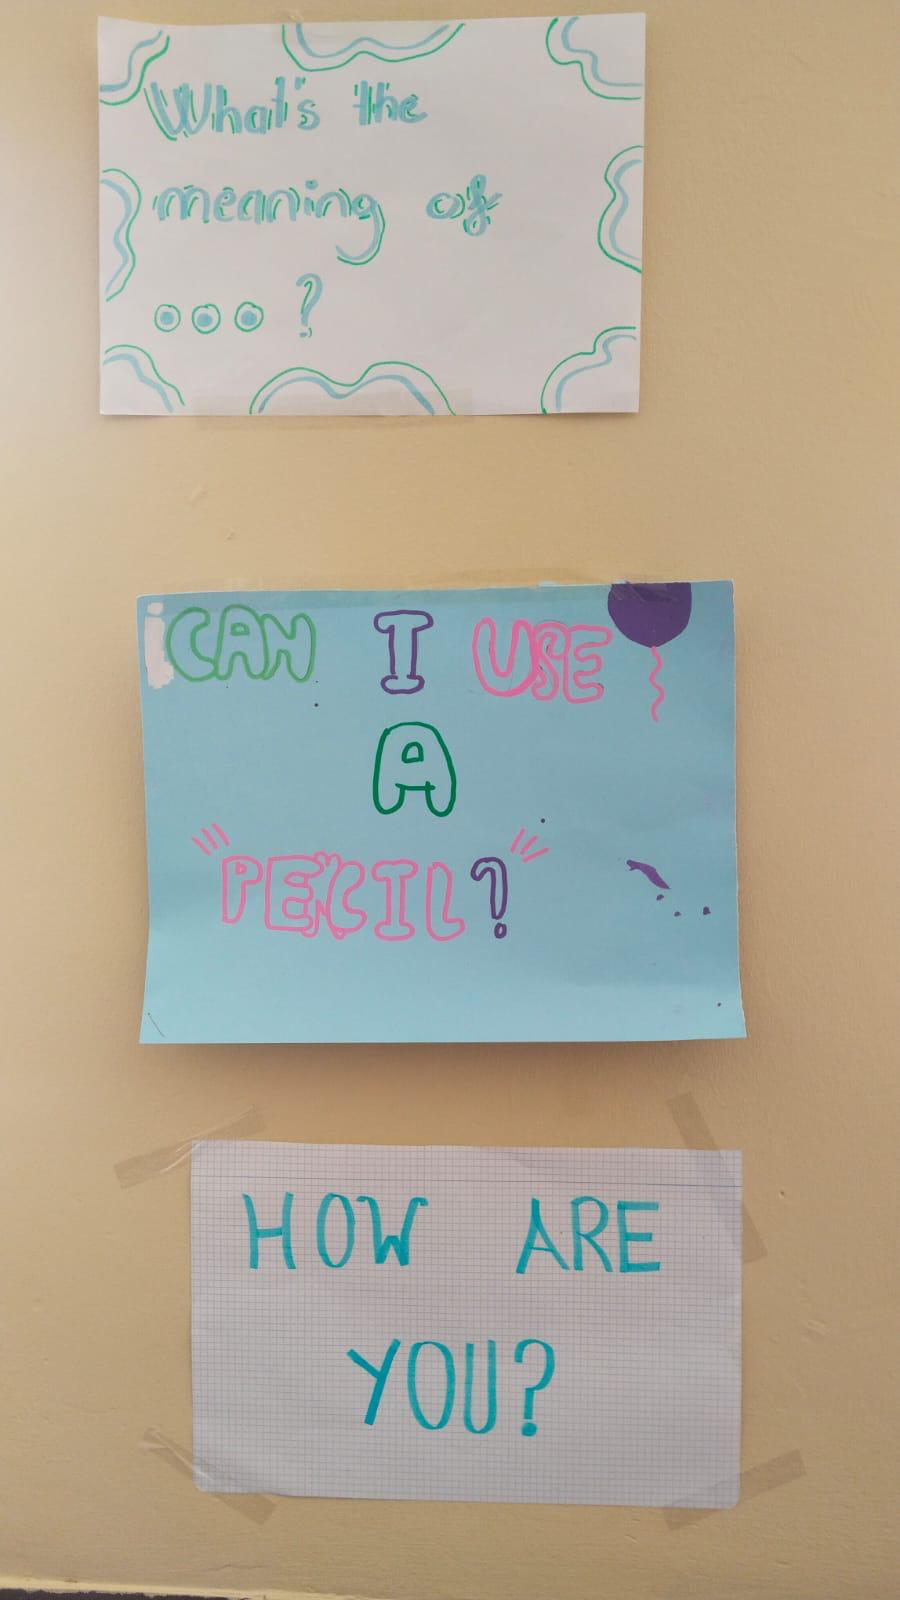 What's the
meaning of
... ?
CAN I USE
A
PENCIL?
HOW ARE
YOU?